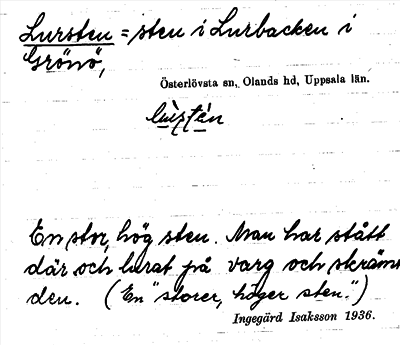 Lursten = sten i Lurbacken i
Grönö,
Österlövsta sn, Olands hd, Uppsala län.
En stor, hög sten. Man har stått
där och lurat på varg och skrämt
den. (En "storer, höger sten.")
Ingegärd Isaksson 1936.